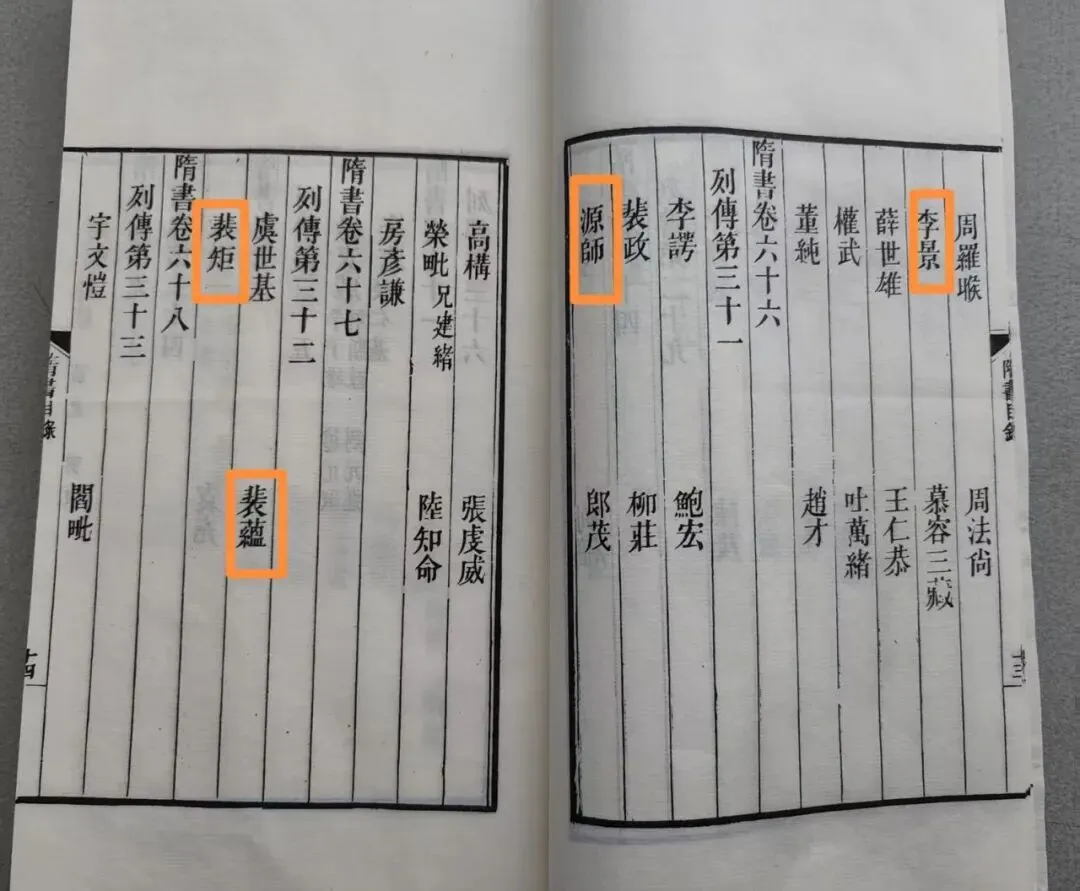 周羅睺 周法尙
李景 慕容三藏
薛世雄 王仁恭
權武 吐萬緒
董純 趙才
隋書卷六十六
列傳第三十一
李諤 鮑宏
裴政 柳莊
源師 郎茂
高構 張虔威
榮毗兄建緒 陸知命
房彥謙
隋書卷六十七
列傳第三十二
虞世基 裴蘊
裴矩
隋書卷六十八
列傳第三十三
宇文愷 閻毗
隋書目錄
十三
隋書目錄
十四